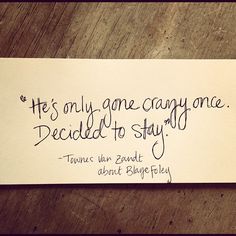 "He's only gone crazy once.
Decided to stay."
-Townes Van Zandt
about Blaze Foley